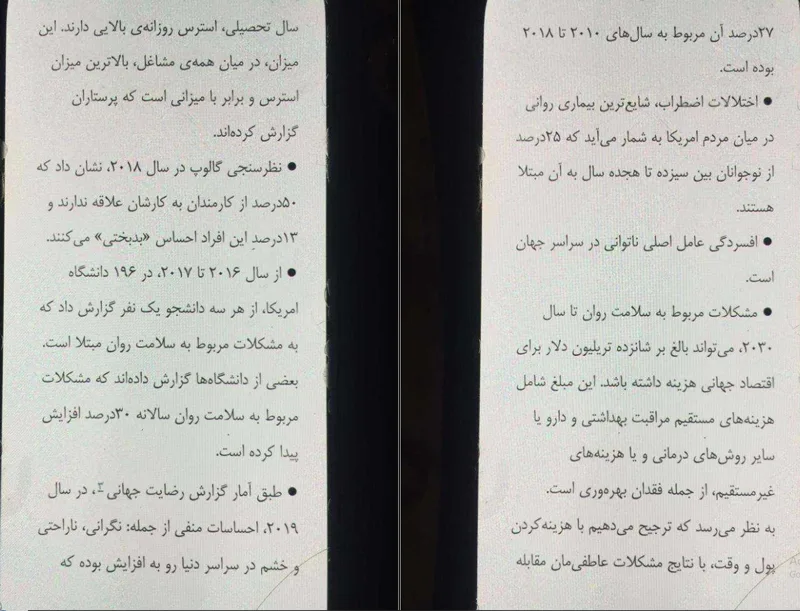 سال تحصیلی، استرس روزانه‌ی بالایی دارند. این
میزان، در میان همه‌ی مشاغل، بالاترین میزان
استرس و برابر با میزانی است که پرستاران
گزارش کرده‌اند.
● نظرسنجی گالوپ در سال ۲۰۱۸، نشان داد که
۵۰درصد از کارمندان به کارشان علاقه ندارند و
۱۳درصدِ این افراد احساس «بدبختی» می‌کنند.
● از سال ۲۰۱۶ تا ۲۰۱۷، در ۱۹۶ دانشگاه
امریکا، از هر سه دانشجو یک نفر گزارش داد که
به مشکلات مربوط به سلامت روان مبتلا است.
بعضی از دانشگاه‌ها گزارش داده‌اند که مشکلات
مربوط به سلامت روان سالانه ۳۰درصد افزایش
پیدا کرده است.
● طبق آمار گزارش رضایت جهانی۳، در سال
۲۰۱۹، احساسات منفی از جمله: نگرانی، ناراحتی
و خشم در سراسر دنیا رو به افزایش بوده که
۲۷درصد آن مربوط به سال‌های ۲۰۱۰ تا ۲۰۱۸
بوده است.
● اختلالات اضطراب، شایع‌ترین بیماری روانی
در میان مردم امریکا به شمار می‌آید که ۲۵درصد
از نوجوانان بین سیزده تا هجده سال به آن مبتلا
هستند.
● افسردگی عامل اصلی ناتوانی در سراسر جهان
است.
● مشکلات مربوط به سلامت روان تا سال
۲۰۳۰، می‌تواند بالغ بر شانزده تریلیون دلار برای
اقتصاد جهانی هزینه داشته باشد. این مبلغ شامل
هزینه‌های مستقیم مراقبت بهداشتی و دارو یا
سایر روش‌های درمانی و یا هزینه‌های
غیرمستقیم، از جمله فقدان بهره‌وری است.
به نظر می‌رسد که ترجیح می‌دهیم با هزینه‌کردن
پول و وقت، با نتایج مشکلات عاطفی‌مان مقابله